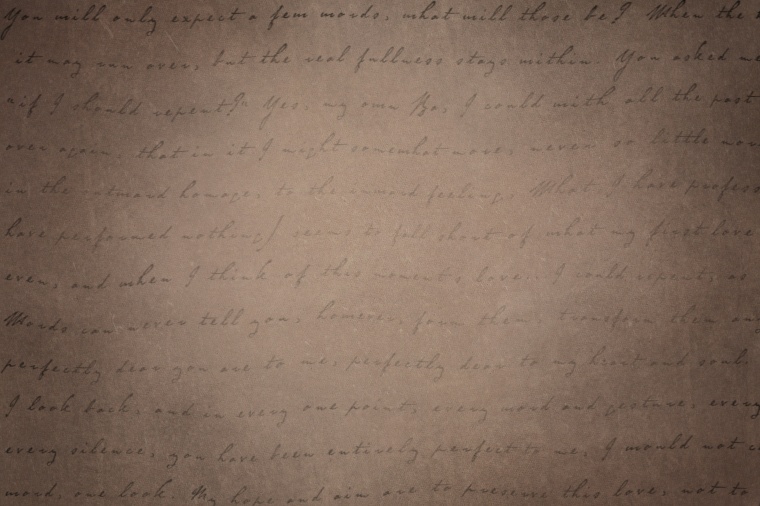 You will only expect a few words, what will those be? When the
it may run over, but the real fullness stays within. You asked me
"if I should repent?" Yes, my own Ba, I could with all the past
over again, that in it I might somewhat more, never so little mor
in the outward homage, to the inward feeling. What I have profess
have performed nothing) seems to fall short of what my first love
even, and when I think of this moment's love.. I could repent, as
Words can never tell you, however, form them, transform them any
perfectly dear you are to me, perfectly dear to my heart and soul.
I look back, and in every one point, every word and gesture, every
every silence, you have been entirely perfect to me, I would not c
word, one look. My hope and aim are to preserve this love, not to